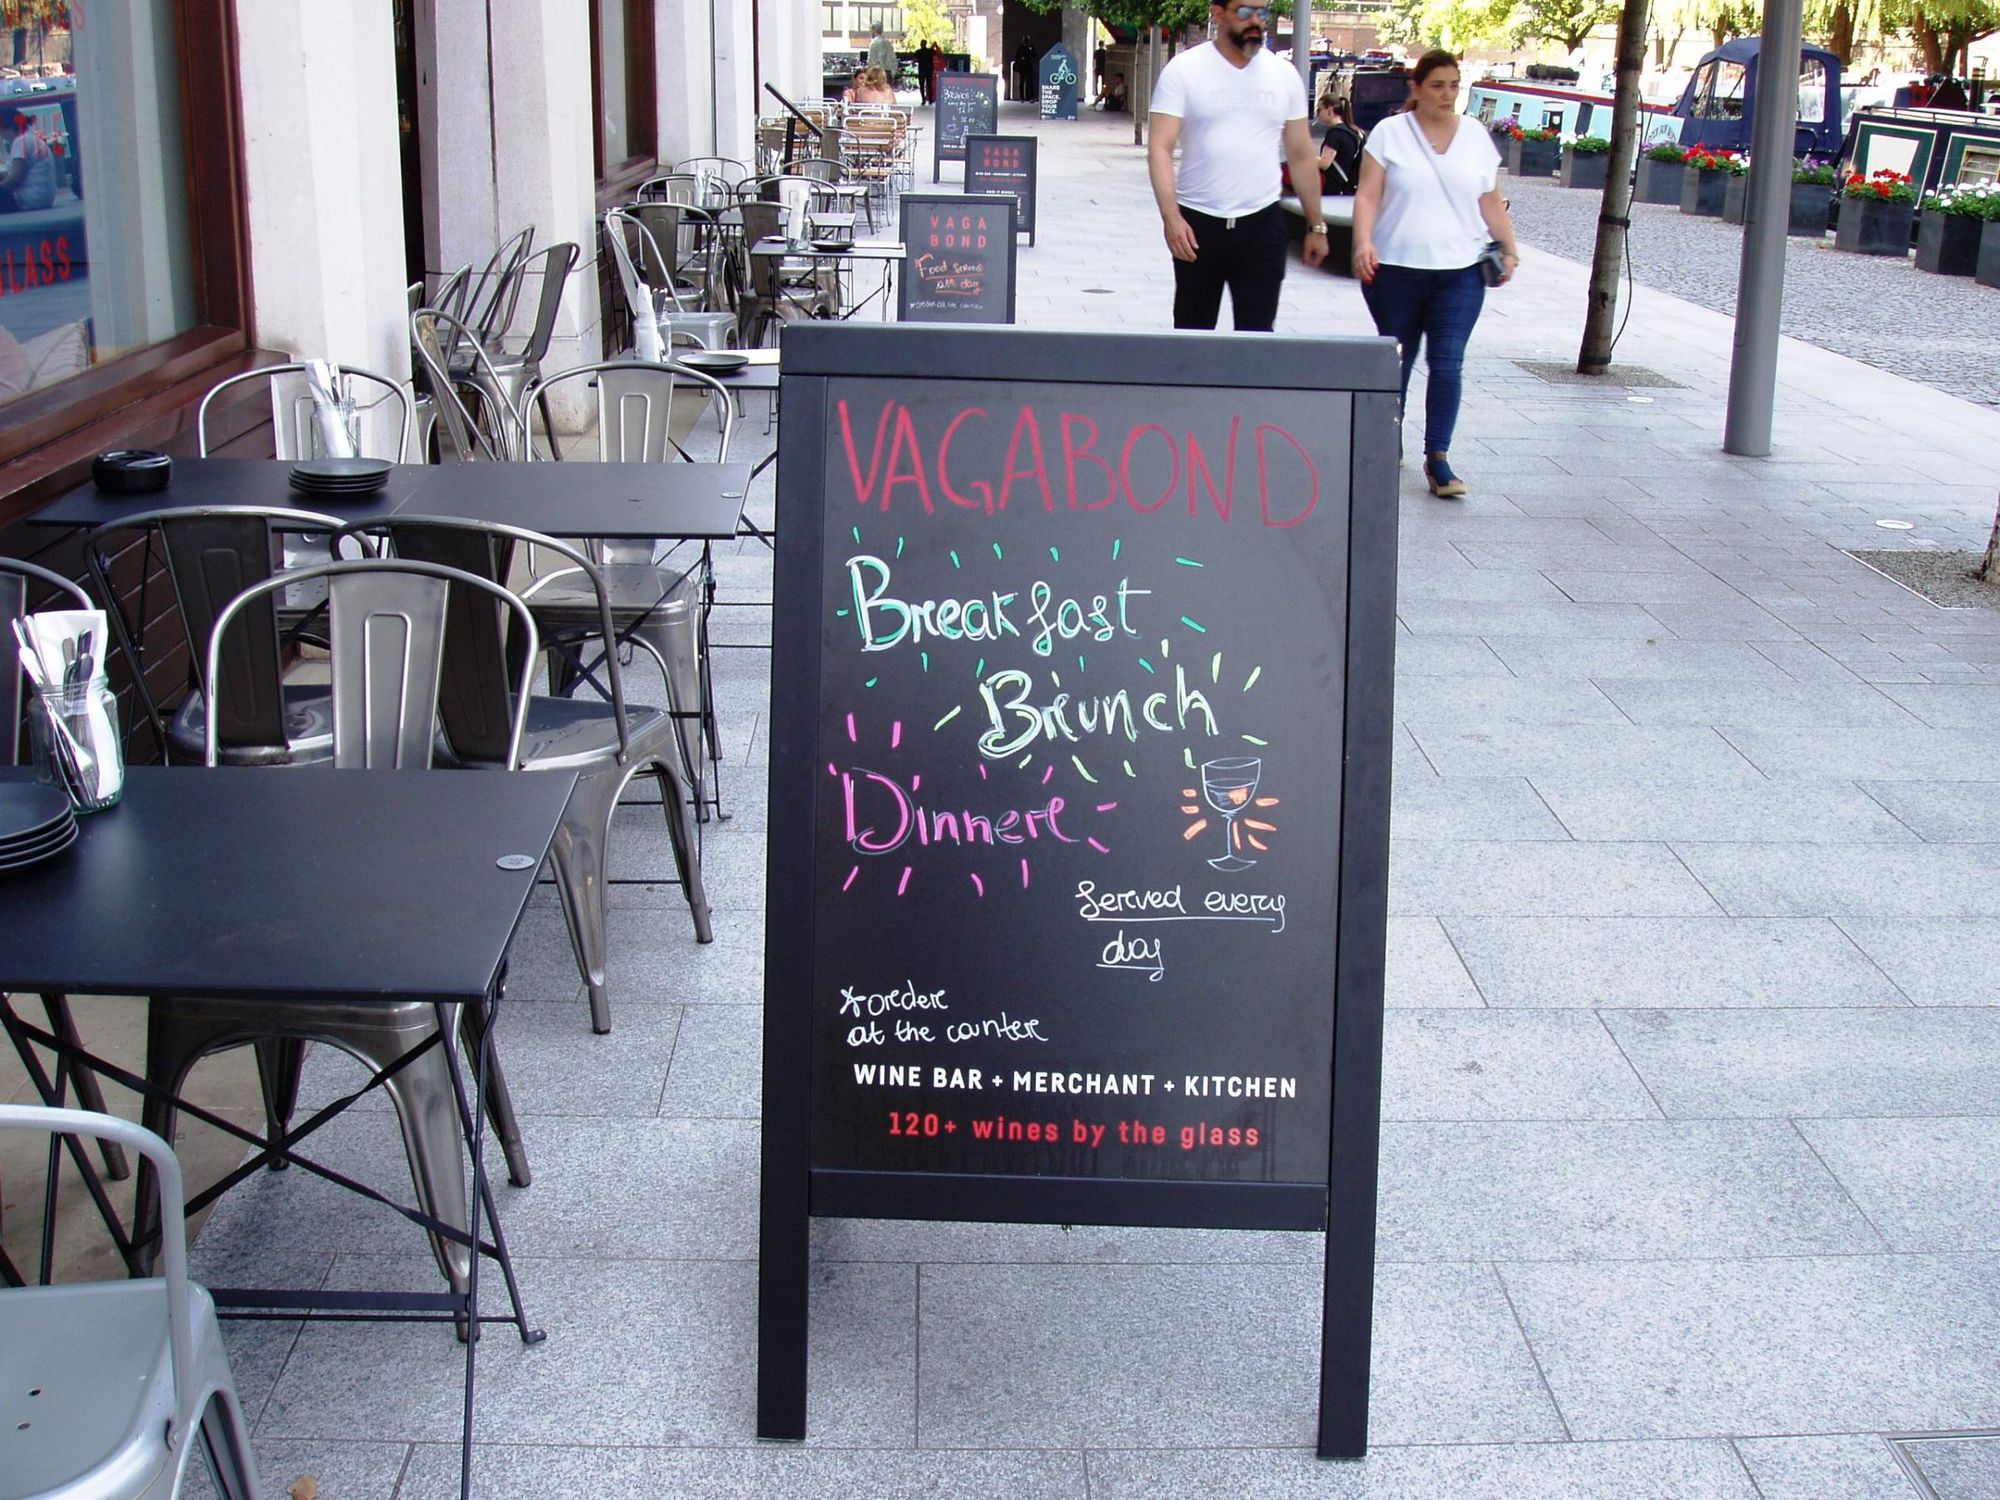 VAGABOND
Breakfast
Brunch
Dinner
Served every
day
*order
at the counter
WINE BAR + MERCHANT + KITCHEN
120+ wines by the glass
VAGA
BOND
Food served
all day
*order at the counter
VAGA
BOND
WINE BAR + MERCHANT + KITCHEN
BRUNCH
SHARE
THE
SPACE,
DROP
YOUR
PACE.
THE
GLASS